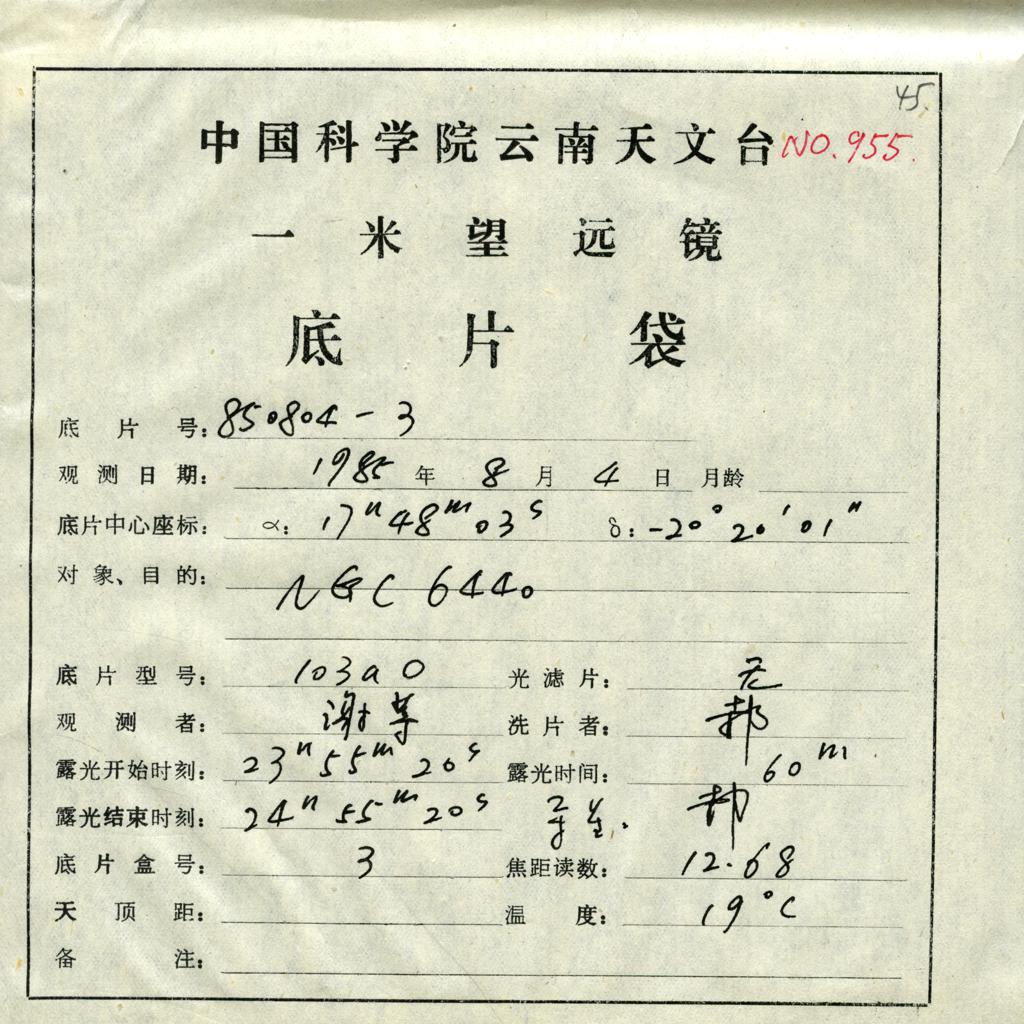 45.
中国科学院云南天文台 NO.955.
一米望远镜
底片袋
底片号: 850804-3
观测日期: 1985年 8月 4日 月龄
底片中心座标: α: 17h 48m 03s δ: -20° 20' 01"
对象、目的: NGC 6440
底片型号: 103aO 光滤片: 无
观测者: 谢等 洗片者:
露光开始时刻: 23h 55m 20s 露光时间: 60m
露光结束时刻: 24h 55m 20s
底片盒号: 3 焦距读数: 12.68
天顶距: 温度: 19°C
备注: